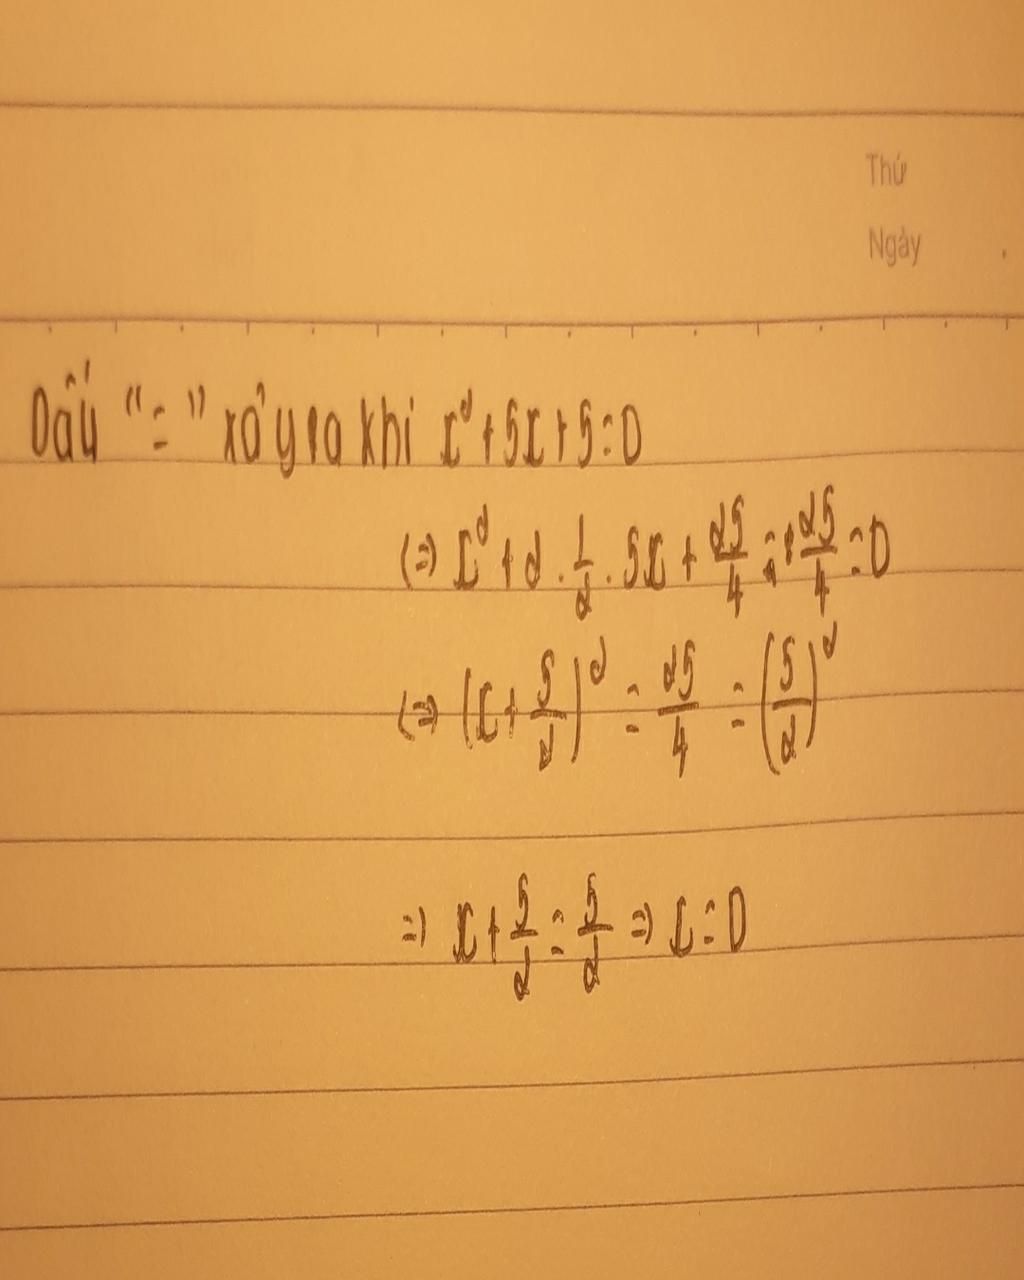 Thứ
Ngày
Dấu "=" xảy ra khi x² + 5x + 5 = 0
(=) x² + 2 . 1/2 . 5x + 25/4 - 25/4 = 0
(=) (x + 5/2)² = 25/4 = (5/2)²
=) x + 5/2 = 5/2 =) x = 0